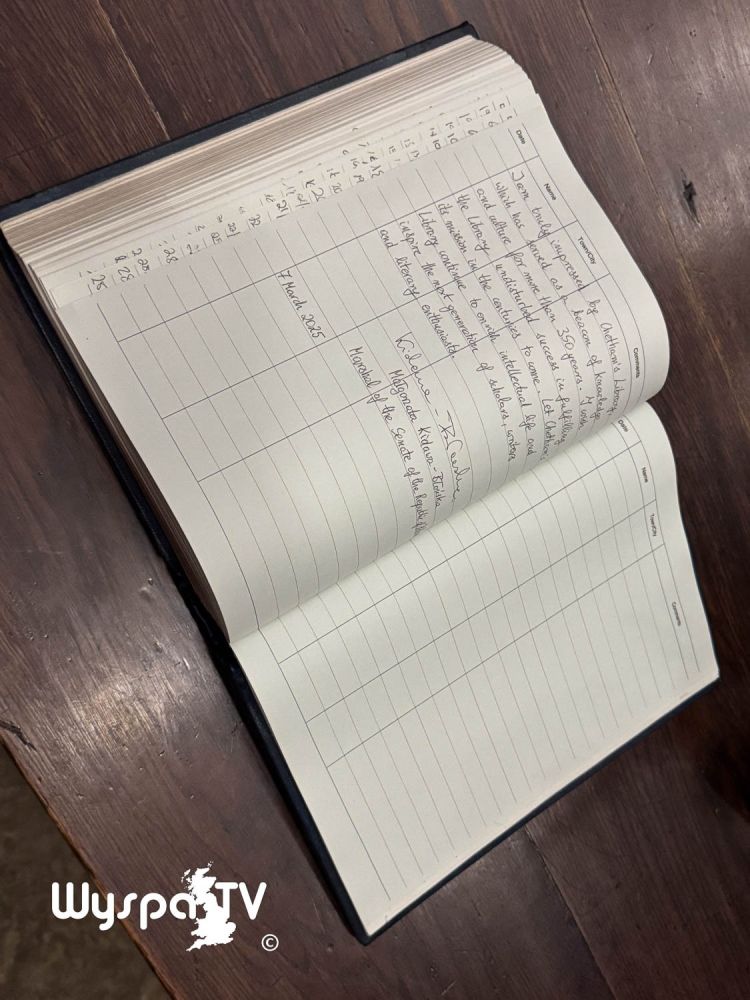 Date Name Town/City Comments
I am truly impressed by Chetham's Library,
which has served as a beacon of knowledge
and culture for more than 350 years. I wish
the Library undisturbed success in fulfilling
its mission in the centuries to come. Let Chetham's
Library continue to enrich intellectual life and
inspire the next generation of scholars, writers
and literary enthusiasts.
Małgorzata Kidawa-Błońska
Marshal of the Senate of the Republic of
7 March 2025
Date Name Town/City Comments
Wyspa TV
©